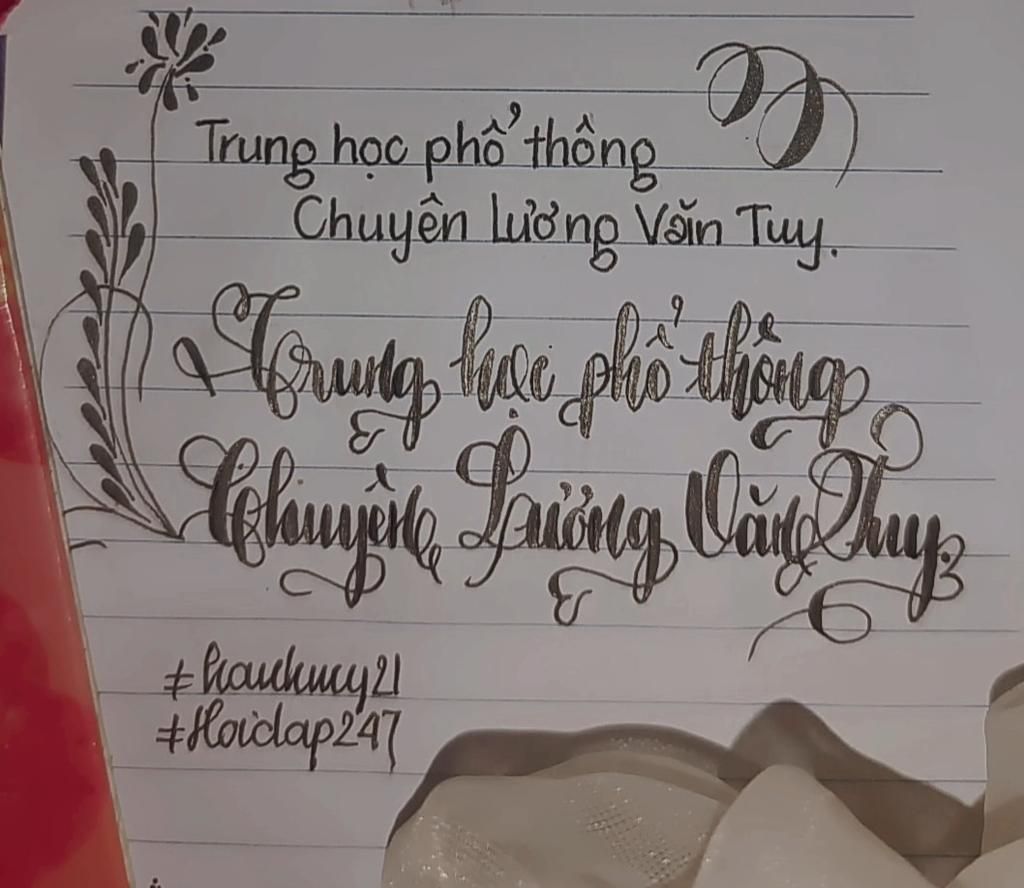 Trung học phổ thông
Chuyên Lương Văn Tuy.
Trung học phổ thông
Chuyên Lương Văn Tuy.
#Hoidap247